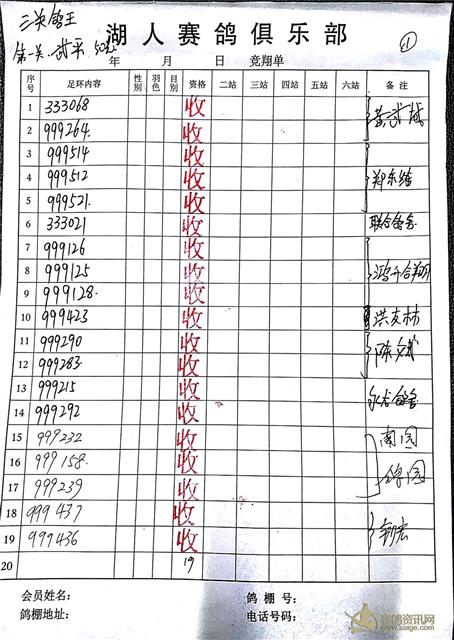 三关鸽王
第一关
湖人赛鸽俱乐部
年 月 日 竞翔单
序号 足环内容 性别 羽色 目别 资格 一站 二站 三站 四站 五站 六站 备注
1 333068 收
2 999264 收
3 999514 收
4 999512 收 郑东绪
5 999521 收
6 333021 收 联合鸽舍
7 999126 收
8 999125 收 鸿升合翔
9 999128 收
10 999423 收 洪友林
11 999290 收
12 999283 收
13 999215 收
14 999292 收
15 999232 收 南园
16 999158 收 鸽园
17 999239 收
18 999437 收
19 999436 收
20 19
会员姓名: 鸽棚号:
鸽棚地址: 电话号码:
赛鸽资讯网
www.saige.com